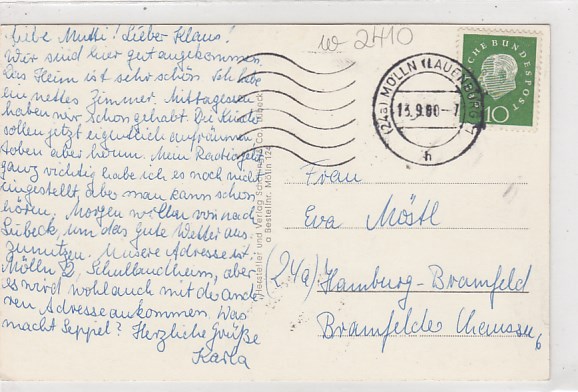 Liebe Mutti! Lieber Klaus!
Wir sind hier gut angekommen.
Das Heim ist sehr schön. Ich habe
ein nettes Zimmer. Mittagessen
haben wir schon gehabt. Die Kinder
sollen jetzt eigentlich aufräumen,
toben aber herum. Mein Radio geht
ganz richtig habe ich es noch nicht
eingestellt, aber man kann schon
hören. Morgen wollen wir nach
Lübeck, um das gute Wetter aus-
zunutzen. Unsere Adresse ist.
Mölln Schullandheim, aber
es wird wohl auch mit der ande-
ren Adresse ankommen. Was
macht Seppel? Herzliche Grüße
Karla
w 2410
(24a) MÖLLN (LAUENBURG)
13.9.60-7
h
DEUTSCHE BUNDESPOST
10
Hersteller und Verlag Schöning & Co., Lübeck
Bestellnr. Mölln 124
Frau
Eva Möstl
(24a) Hamburg-Bramfeld
Bramfelder Chaussee 6